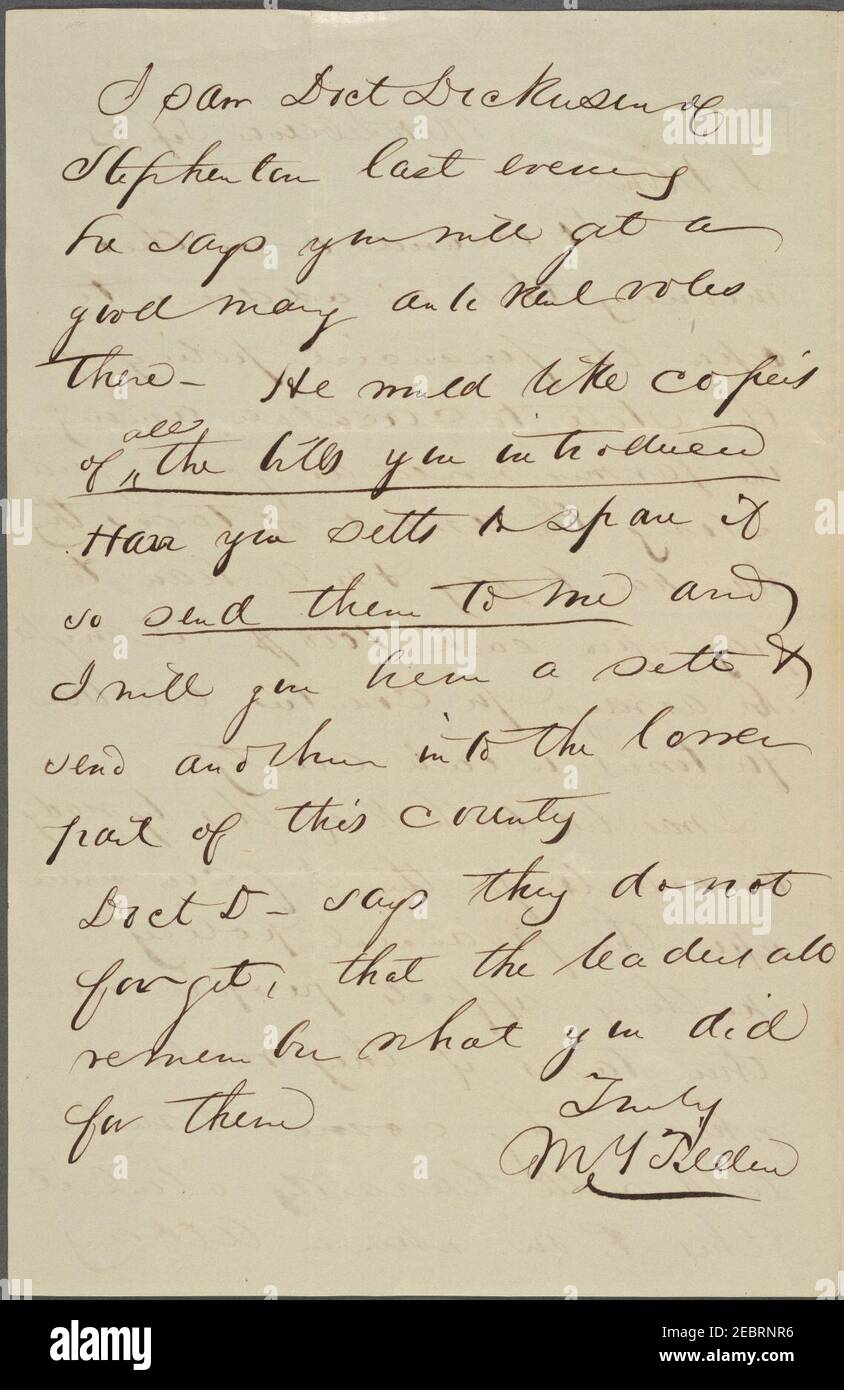 I saw Doct Dickinson of
Stephenton last evening
he says you will get a
good many anti Rent votes
there - He would like copies
of all the bills you introduced
Have you setts to spare if
so send them to me and
I will give him a sett &
send another into the lower
part of this county
Doct D - says they do not
forget, that the leaders all
remember what you did
for them
Truly
M Y Tilden
alamy
Image ID: 2EBRNR6
www.alamy.com